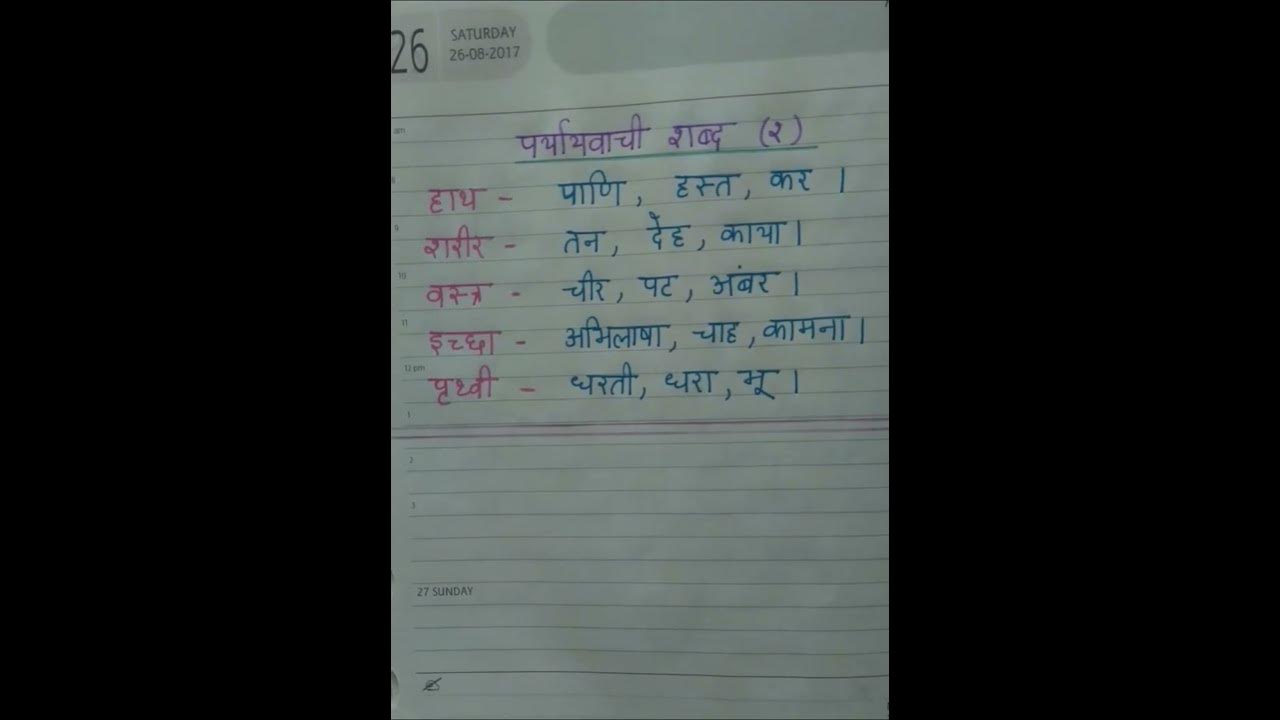 26 SATURDAY
26-08-2017
am
पर्यायवाची शब्द (२)
8
हाथ - पाणि, हस्त, कर ।
9
शरीर - तन, देह, काया ।
10
वस्त्र - चीर, पट, अंबर ।
11
इच्छा - अभिलाषा, चाह, कामना ।
12 pm
पृथ्वी - धरती, धरा, भू ।
1
2
3
27 SUNDAY